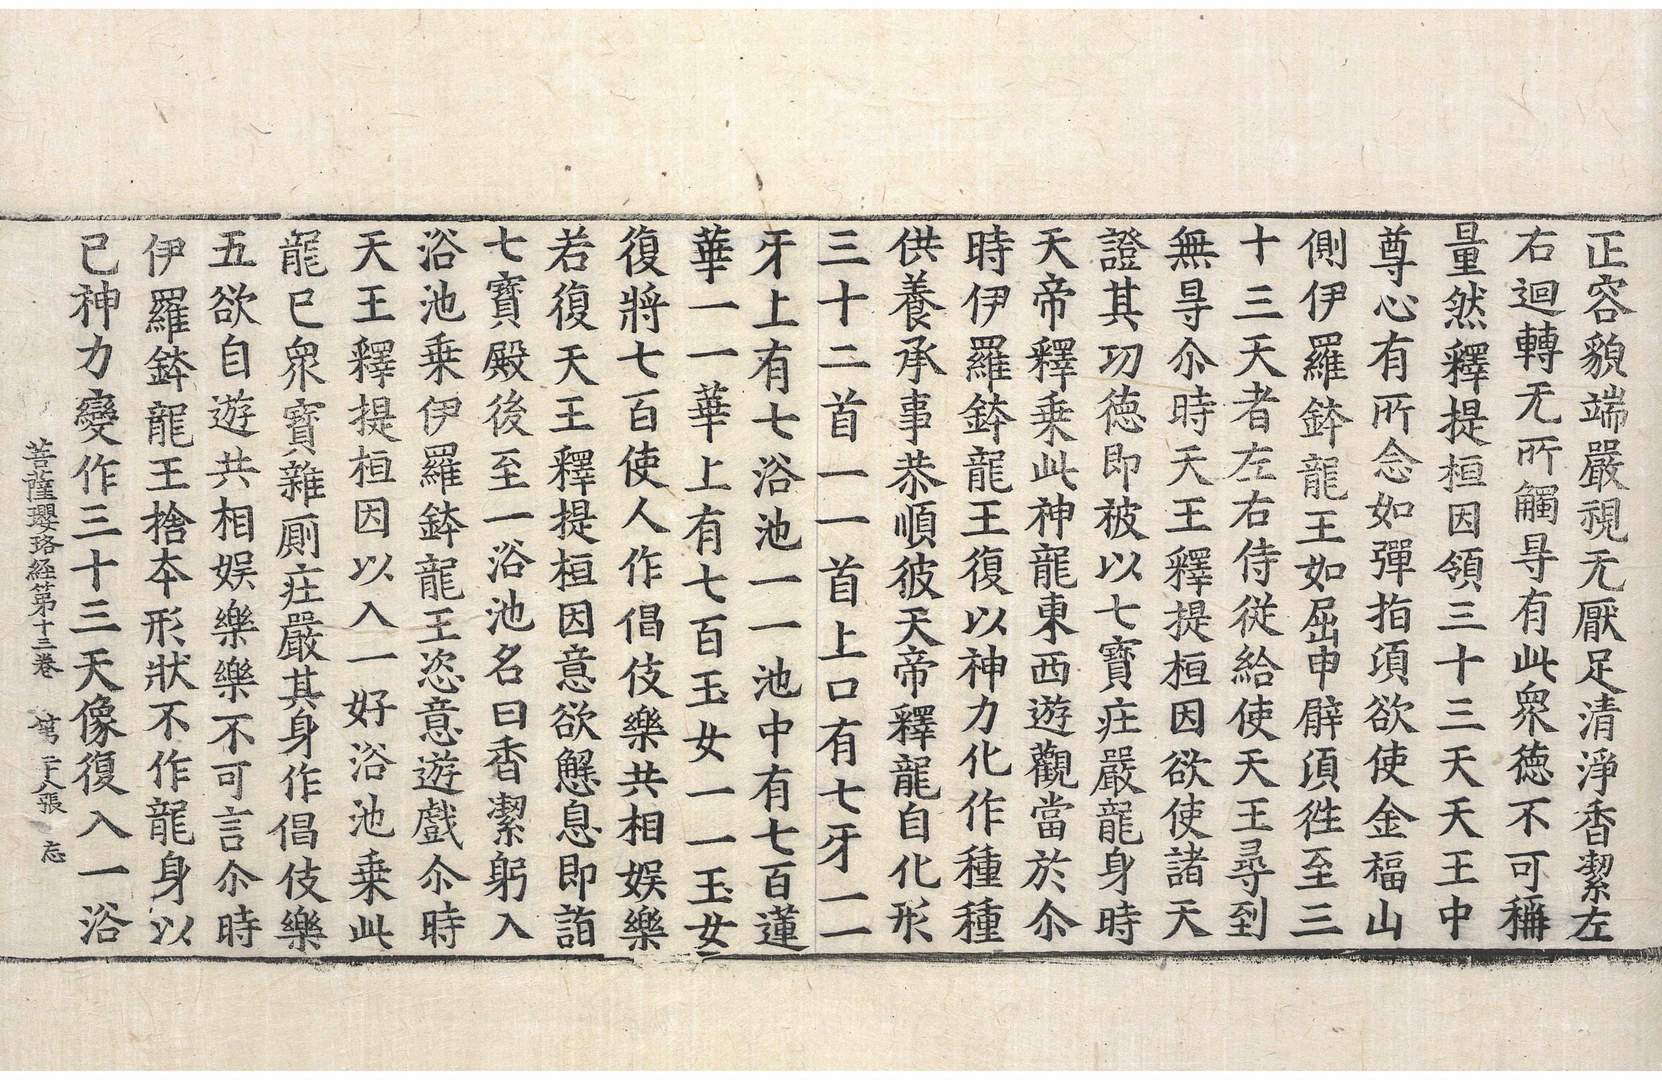 正容貌端嚴視无厭足清淨香潔左
右迴轉无所觸㝵有此衆德不可稱
量然釋提桓因領三十三天天王中
尊心有所念如彈指頃欲使金福山
側伊羅鉢龍王如屈申臂湏徃至三
十三天者左右侍從給使天王尋到
無㝵尒時天王釋提桓因欲使諸天
證其功德即被以七寶庄嚴龍身時
天帝釋乗此神龍東西遊觀當於尒
時伊羅鉢龍王復以神力化作種種
供養承事恭順彼天帝釋龍自化形
三十二首一一首上口有七牙一一
牙上有七浴池一一池中有七百蓮
華一一華上有七百玉女一一玉女
復將七百使人作倡伎樂共相娱樂
若復天王釋提桓因意欲懈息即詣
七寶殿後至一浴池名曰香潔躬入
浴池乗伊羅鉢龍王恣意遊戲尒時
天王釋提桓因以入一好浴池乗此
龍已衆寶雜厠庄嚴其身作倡伎樂
五欲自遊共相娱樂樂不可言尒時
伊羅鉢龍王捨夲形狀不作龍身以
已神力變作三十三天像復入一浴
菩薩瓔珞経第十三卷 第二十八張 忘